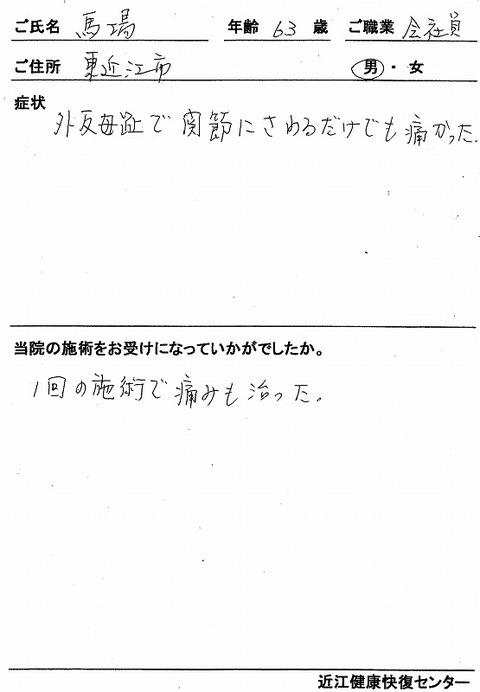 ご氏名 馬場 年齢 63 歳 ご職業 会社員
ご住所 東近江市 男・女
症状
外反母趾で関節にさわるだけでも痛かった.
当院の施術をお受けになっていかがでしたか。
1回の施術で痛みも治った。
近江健康快復センター